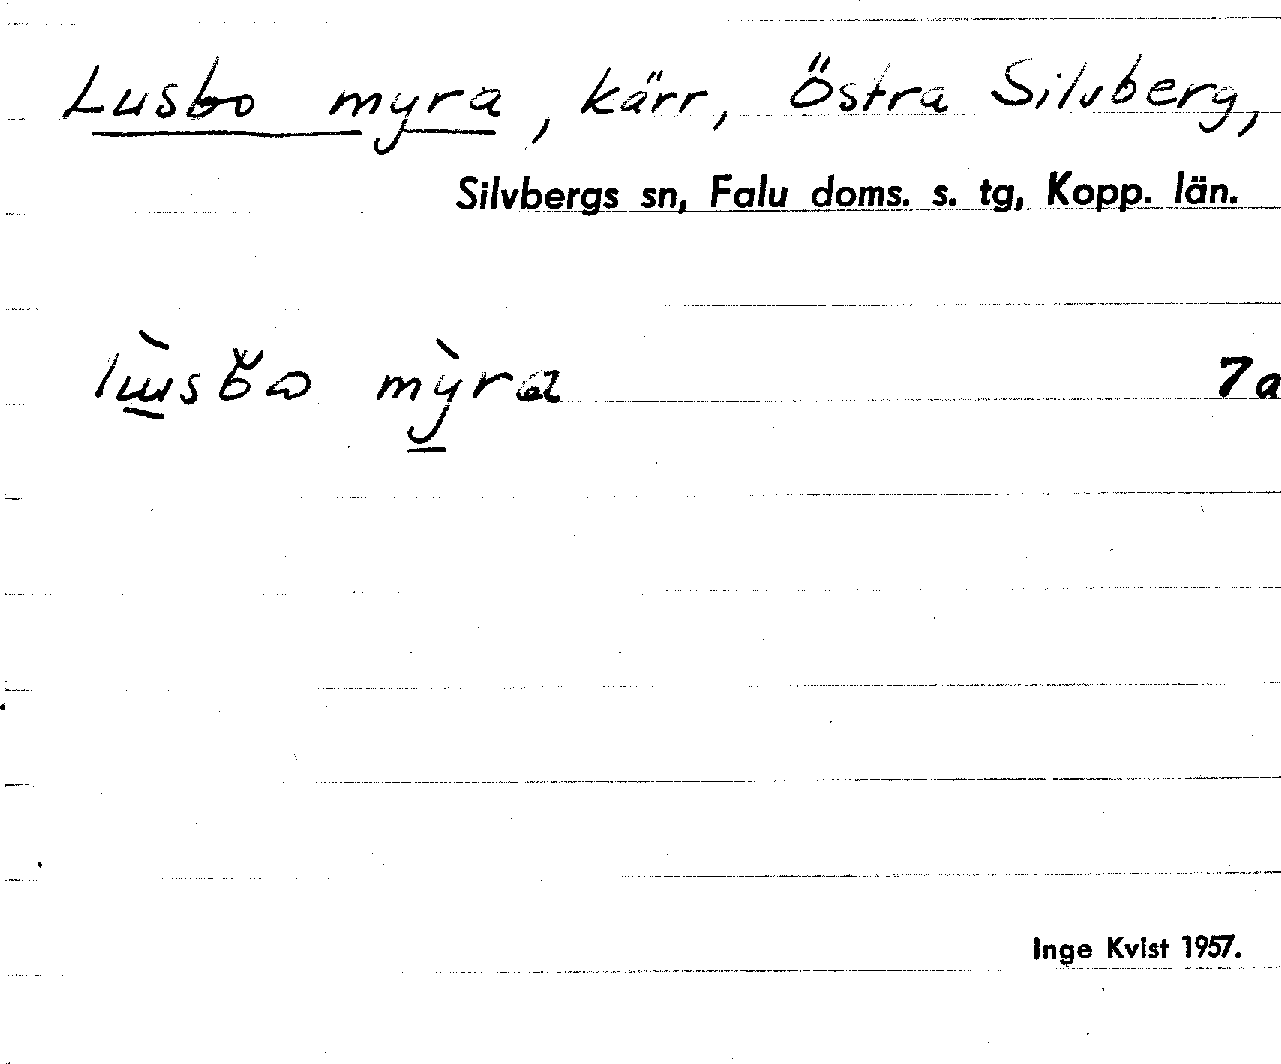 Lusbo myra, kärr, Östra Silvberg,
Silvbergs sn, Falu doms. s. tg, Kopp. län.
myra
7a
Inge Kvist 1957.